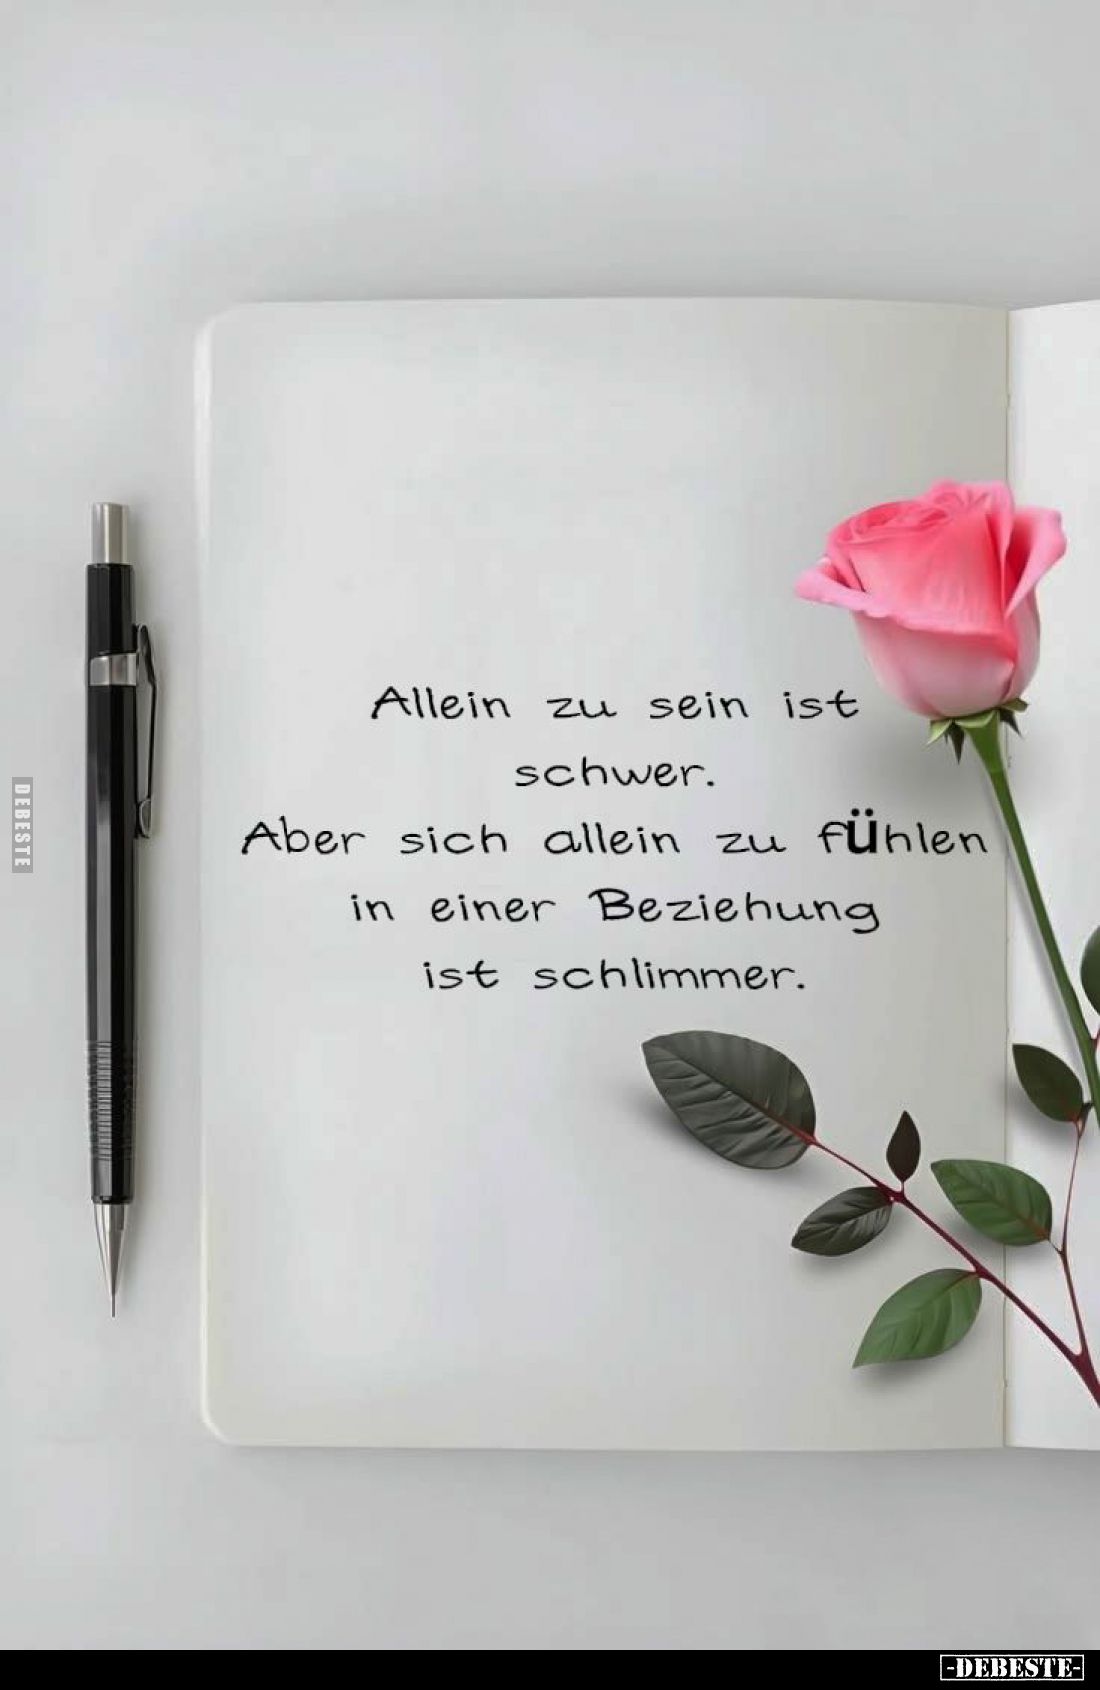 Allein zu sein ist
schwer.
Aber sich allein zu fühlen
in einer Beziehung
ist schlimmer.
DEBESTE
-DEBESTE-